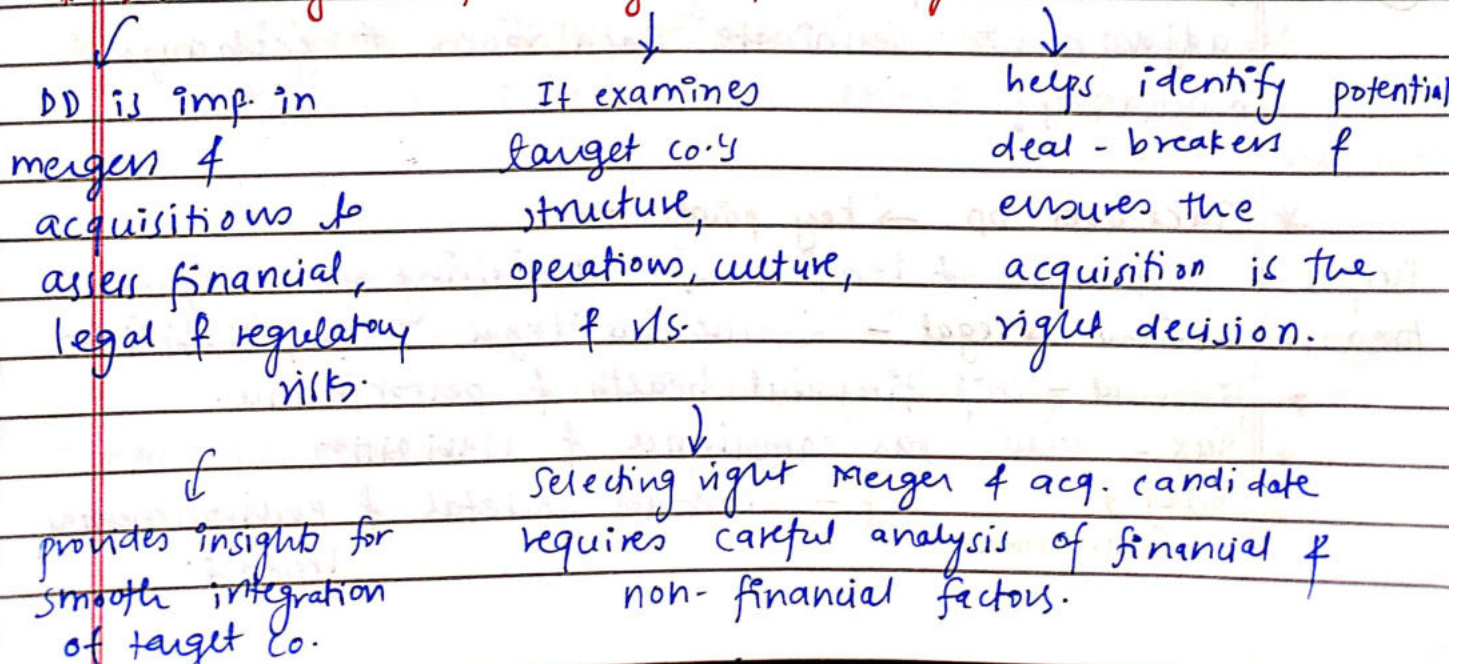 DD is imp. in
mergers &
acquisitions to
assess financial,
legal & regulatory
risks.
It examines
target co.'s
structure,
operations, culture,
& r/s.
helps identify potential
deal - breakers &
ensures the
acquisition is the
right decision.
provides insights for
smooth integration
of target co.
Selecting right Merger & acq. candidate
requires careful analysis of financial &
non- financial factors.